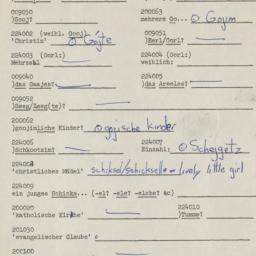 009050 200063
)Gooj? mehrere Go... o Gojim
224002 (weibl. Gooj) 009051
'Christin' o Gojte )Eerl/Gorl?
224003 (Gorl:) 224004 (Gorl:)
Mehrzahl weiblich:
009040 224005
)das Gaajes? )das Areelse?
009052
)Geeg/Leeg(te)?
200062
)goojinliche Kinder? o gojische kinder
224006 224007
)Schkootzim? Einzahl: o Schejgetz
224008
'christliches Mädel' schiksel/schicksele = lively little girl
224009
ein junges Schicks... (-el? -ele? -elche? &c)
200020 224010
'katholische Kirche' )Tumme?
201030
'evangelischer Glaube' e
200100